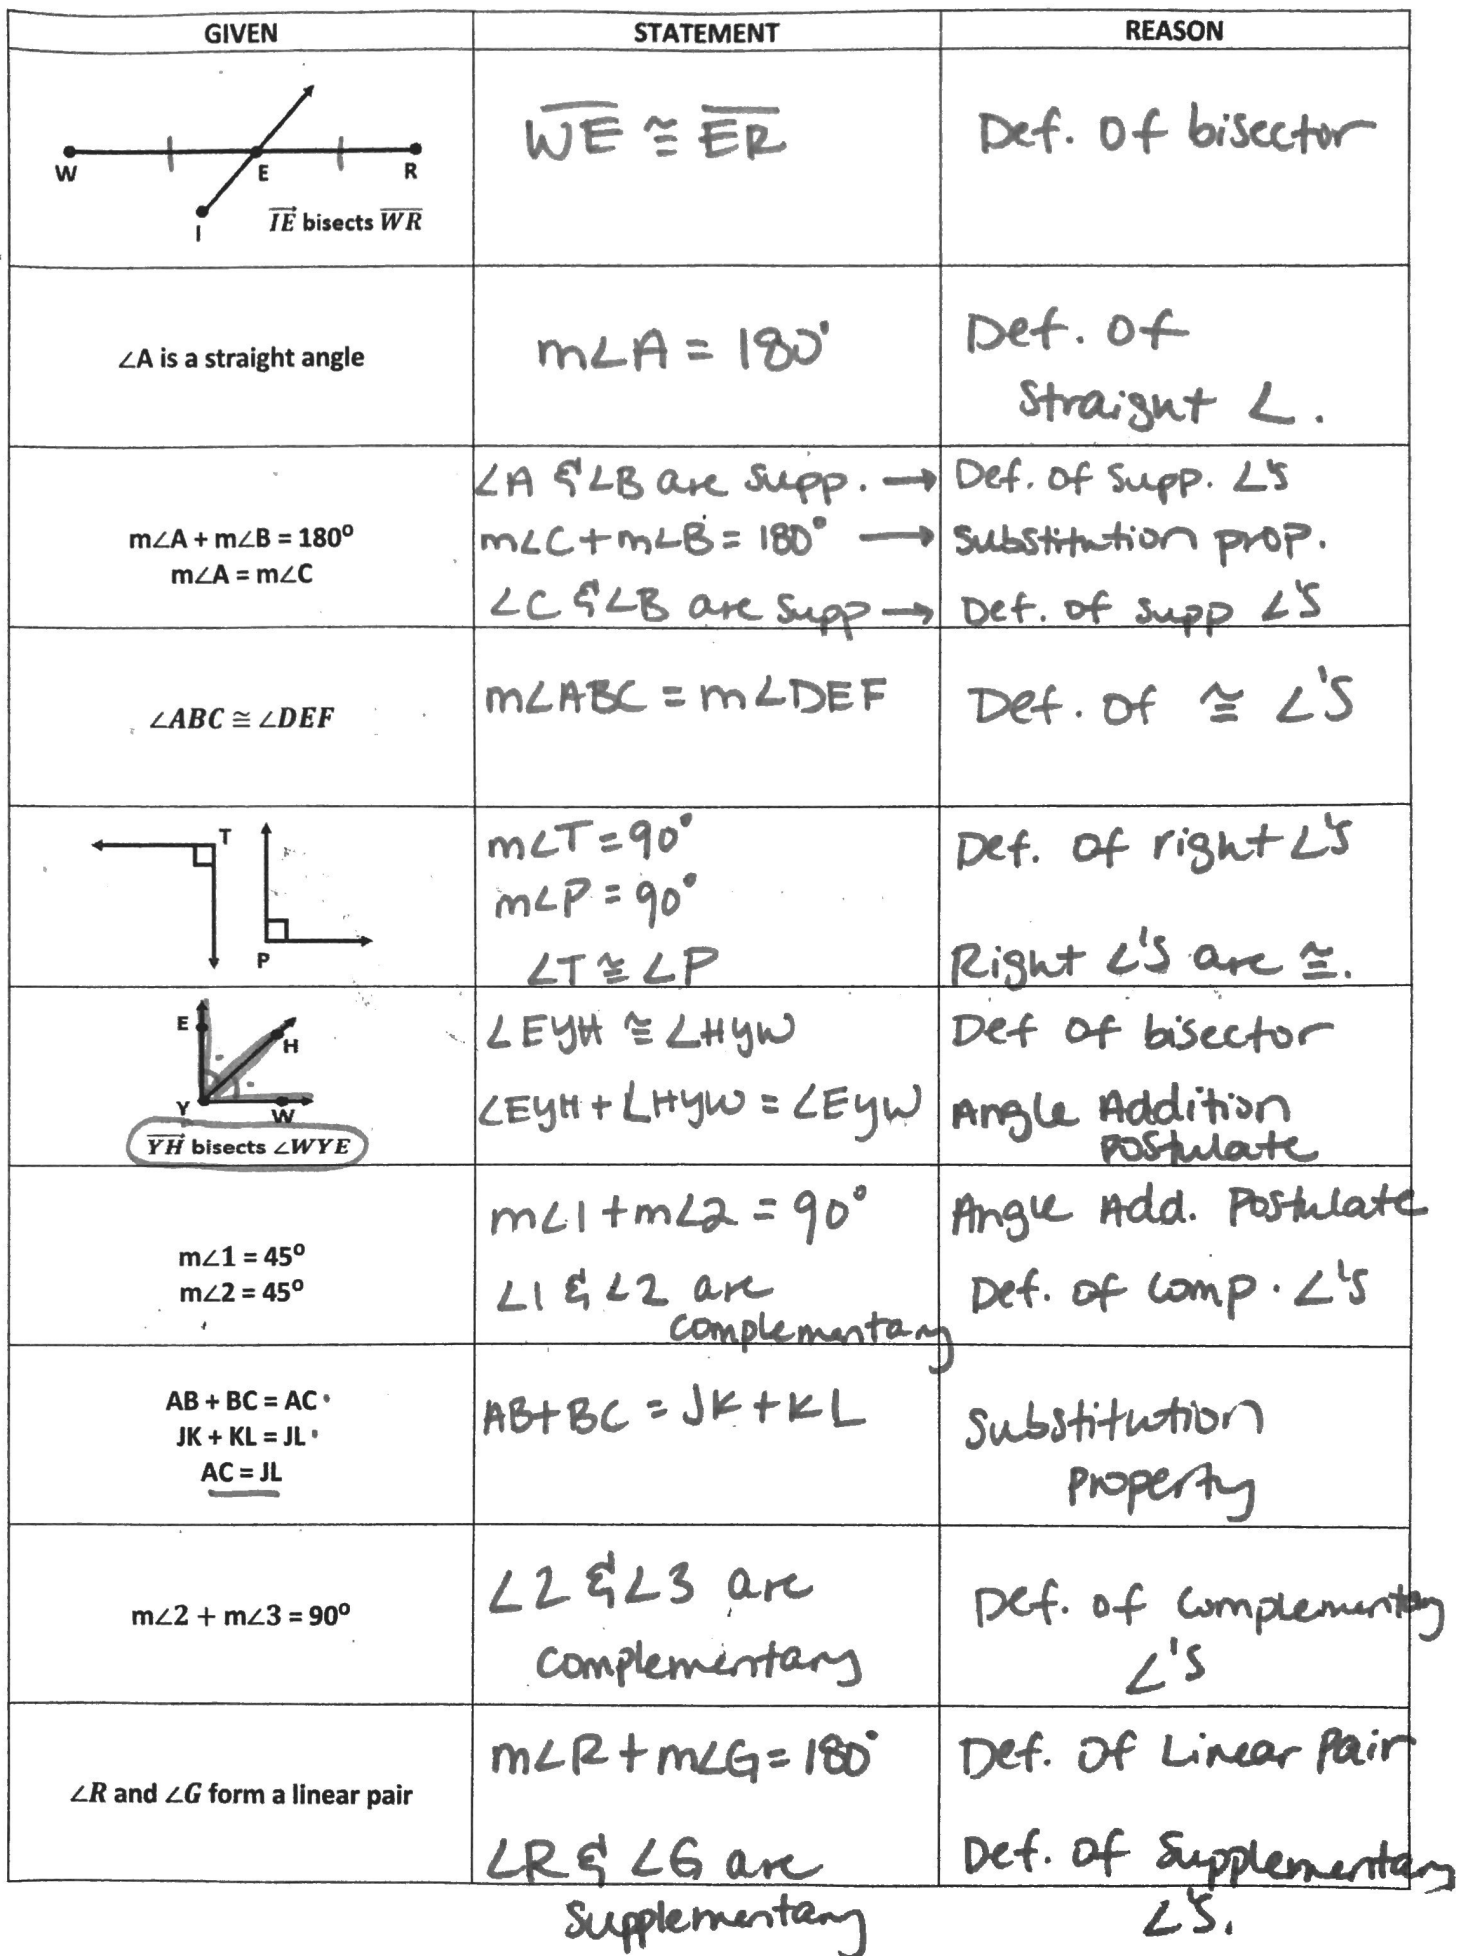 GIVEN STATEMENT REASON
W E R
I
IE bisects WR
WE ≅ ER
Def. of bisector
∠A is a straight angle
m∠A = 180°
Def. of
Straight ∠.
m∠A + m∠B = 180°
m∠A = m∠C
∠A & ∠B are supp. → Def. of supp. ∠'s
m∠C + m∠B = 180° → Substitution prop.
∠C & ∠B are supp → Def. of supp ∠'s
∠ABC ≅ ∠DEF
m∠ABC = m∠DEF
Def. of ≅ ∠'s
T
P
m∠T = 90°
m∠P = 90°
∠T ≅ ∠P
Def. of right ∠'s
Right ∠'s are ≅.
E
H
Y
W
YH bisects ∠WYE
∠EYH ≅ ∠HYW
∠EYH + ∠HYW = ∠EYW
Def of bisector
Angle Addition
Postulate
m∠1 = 45°
m∠2 = 45°
m∠1 + m∠2 = 90°
∠1 & ∠2 are
complementary
Angle Add. Postulate
Def. of comp. ∠'s
AB + BC = AC
JK + KL = JL
AC = JL
AB + BC = JK + KL
Substitution
Property
m∠2 + m∠3 = 90°
∠2 & ∠3 are
complementary
Def. of complementary
∠'s
∠R and ∠G form a linear pair
m∠R + m∠G = 180°
∠R & ∠G are
supplementary
Def. of Linear Pair
Def. of Supplementary
∠'s.